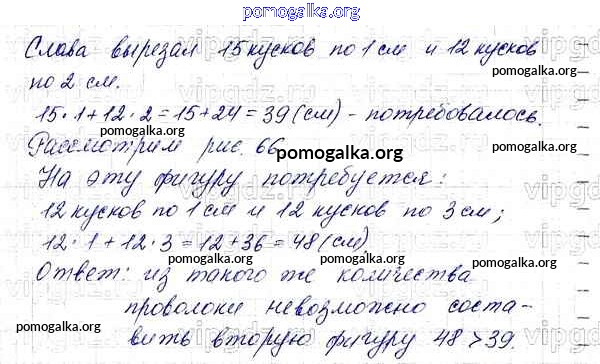 pomogalka.org
Слава вырезал 15 кусков по 1 см и 12 кусков
по 2 см.
15 · 1 + 12 · 2 = 15 + 24 = 39 (см) - потребовалось.
pomogalka.org
Рассмотрим рис. 66
pomogalka.org
На эту фигуру потребуется:
pomogalka.org
12 кусков по 1 см и 12 кусков по 3 см;
12 · 1 + 12 · 3 = 12 + 36 = 48 (см)
pomogalka.org
Ответ: из такого же количества
pomogalka.org
проволоки невозможно соста-
pomogalka.org
вить вторую фигуру 48 > 39.
pomogalka.org